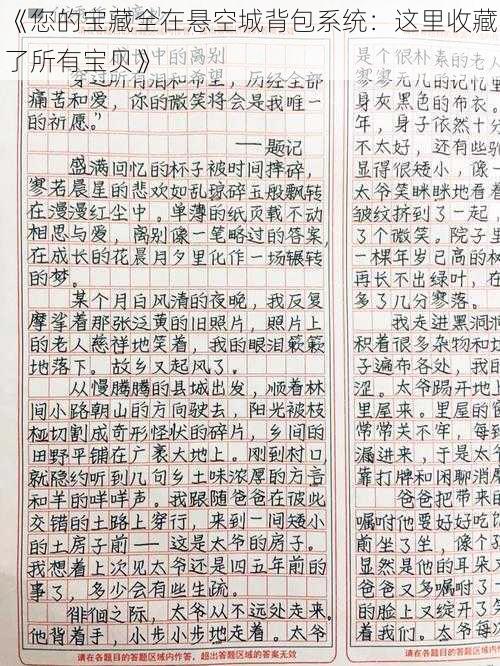 《您的宝藏全在悬空城背包系统：这里收藏
了所有宝贝》
长中的离别
穿过所有泪和希望，历经全部
痛苦和爱，你的微笑将会是我唯一
的祈愿。”
——题记
盛满回忆的杯子被时间摔碎，
寥若晨星的悲欢如乱琼碎玉般飘转
在漫漫红尘中。单薄的纸页载不动
相思与爱，离别像一笔略过的答案，
在成长的花晨月夕里化作一场辗转
的梦。
某个月白风清的夜晚，我反复
摩挲着那张泛黄的旧照片，照片上
的老人慈祥地笑着，我的眼泪簌簌
地落下。故乡又起风了。
从慢腾腾的县城出发，顺着林
间小路朝山的方向驶去，阳光被枝
桠切割成奇形怪状的碎片，乡间的
田野平铺在广袤大地上。刚到村口，
就隐约听到几句乡土味浓厚的方言
和羊的咩咩声。我跟随爸爸在彼此
交错的土路上穿行，来到一间矮小
的土房子前——这是太爷的房子。
我想着上次见太爷还是四五年前的
事了，多少会有些生疏。
徘徊之际，太爷从不远处走来。
他背着手，小步小步地走着。太爷
请在各题目的答题区域内作答，超出答题区域的答案无效
是个很朴素的老人
寥寥无几的记忆里
身灰黑色的布衣。
年，身子依然十分
不太好，还有些驼
显得很矮小，像一
太爷笑眯眯地看着
皱纹挤到了一起，
了个微笑。院子里
一棵年岁已高的树
再长不出绿叶，在
多了几分寥落。
我走进黑洞洞
积着很多杂物和坛
子遍布各处，我
涩。太爷踢开地
里屋来。里屋的窗
常常关不牢，每到
漏进来，于是太爷
靠打牌和闲聊消
爸爸把带来
嘱咐他要好好吃饭
前坐了坐，像一
显然是他的耳朵又
爸爸又多嘱咐了
的脸上又绽开
了，我们
请在各题目的答题区